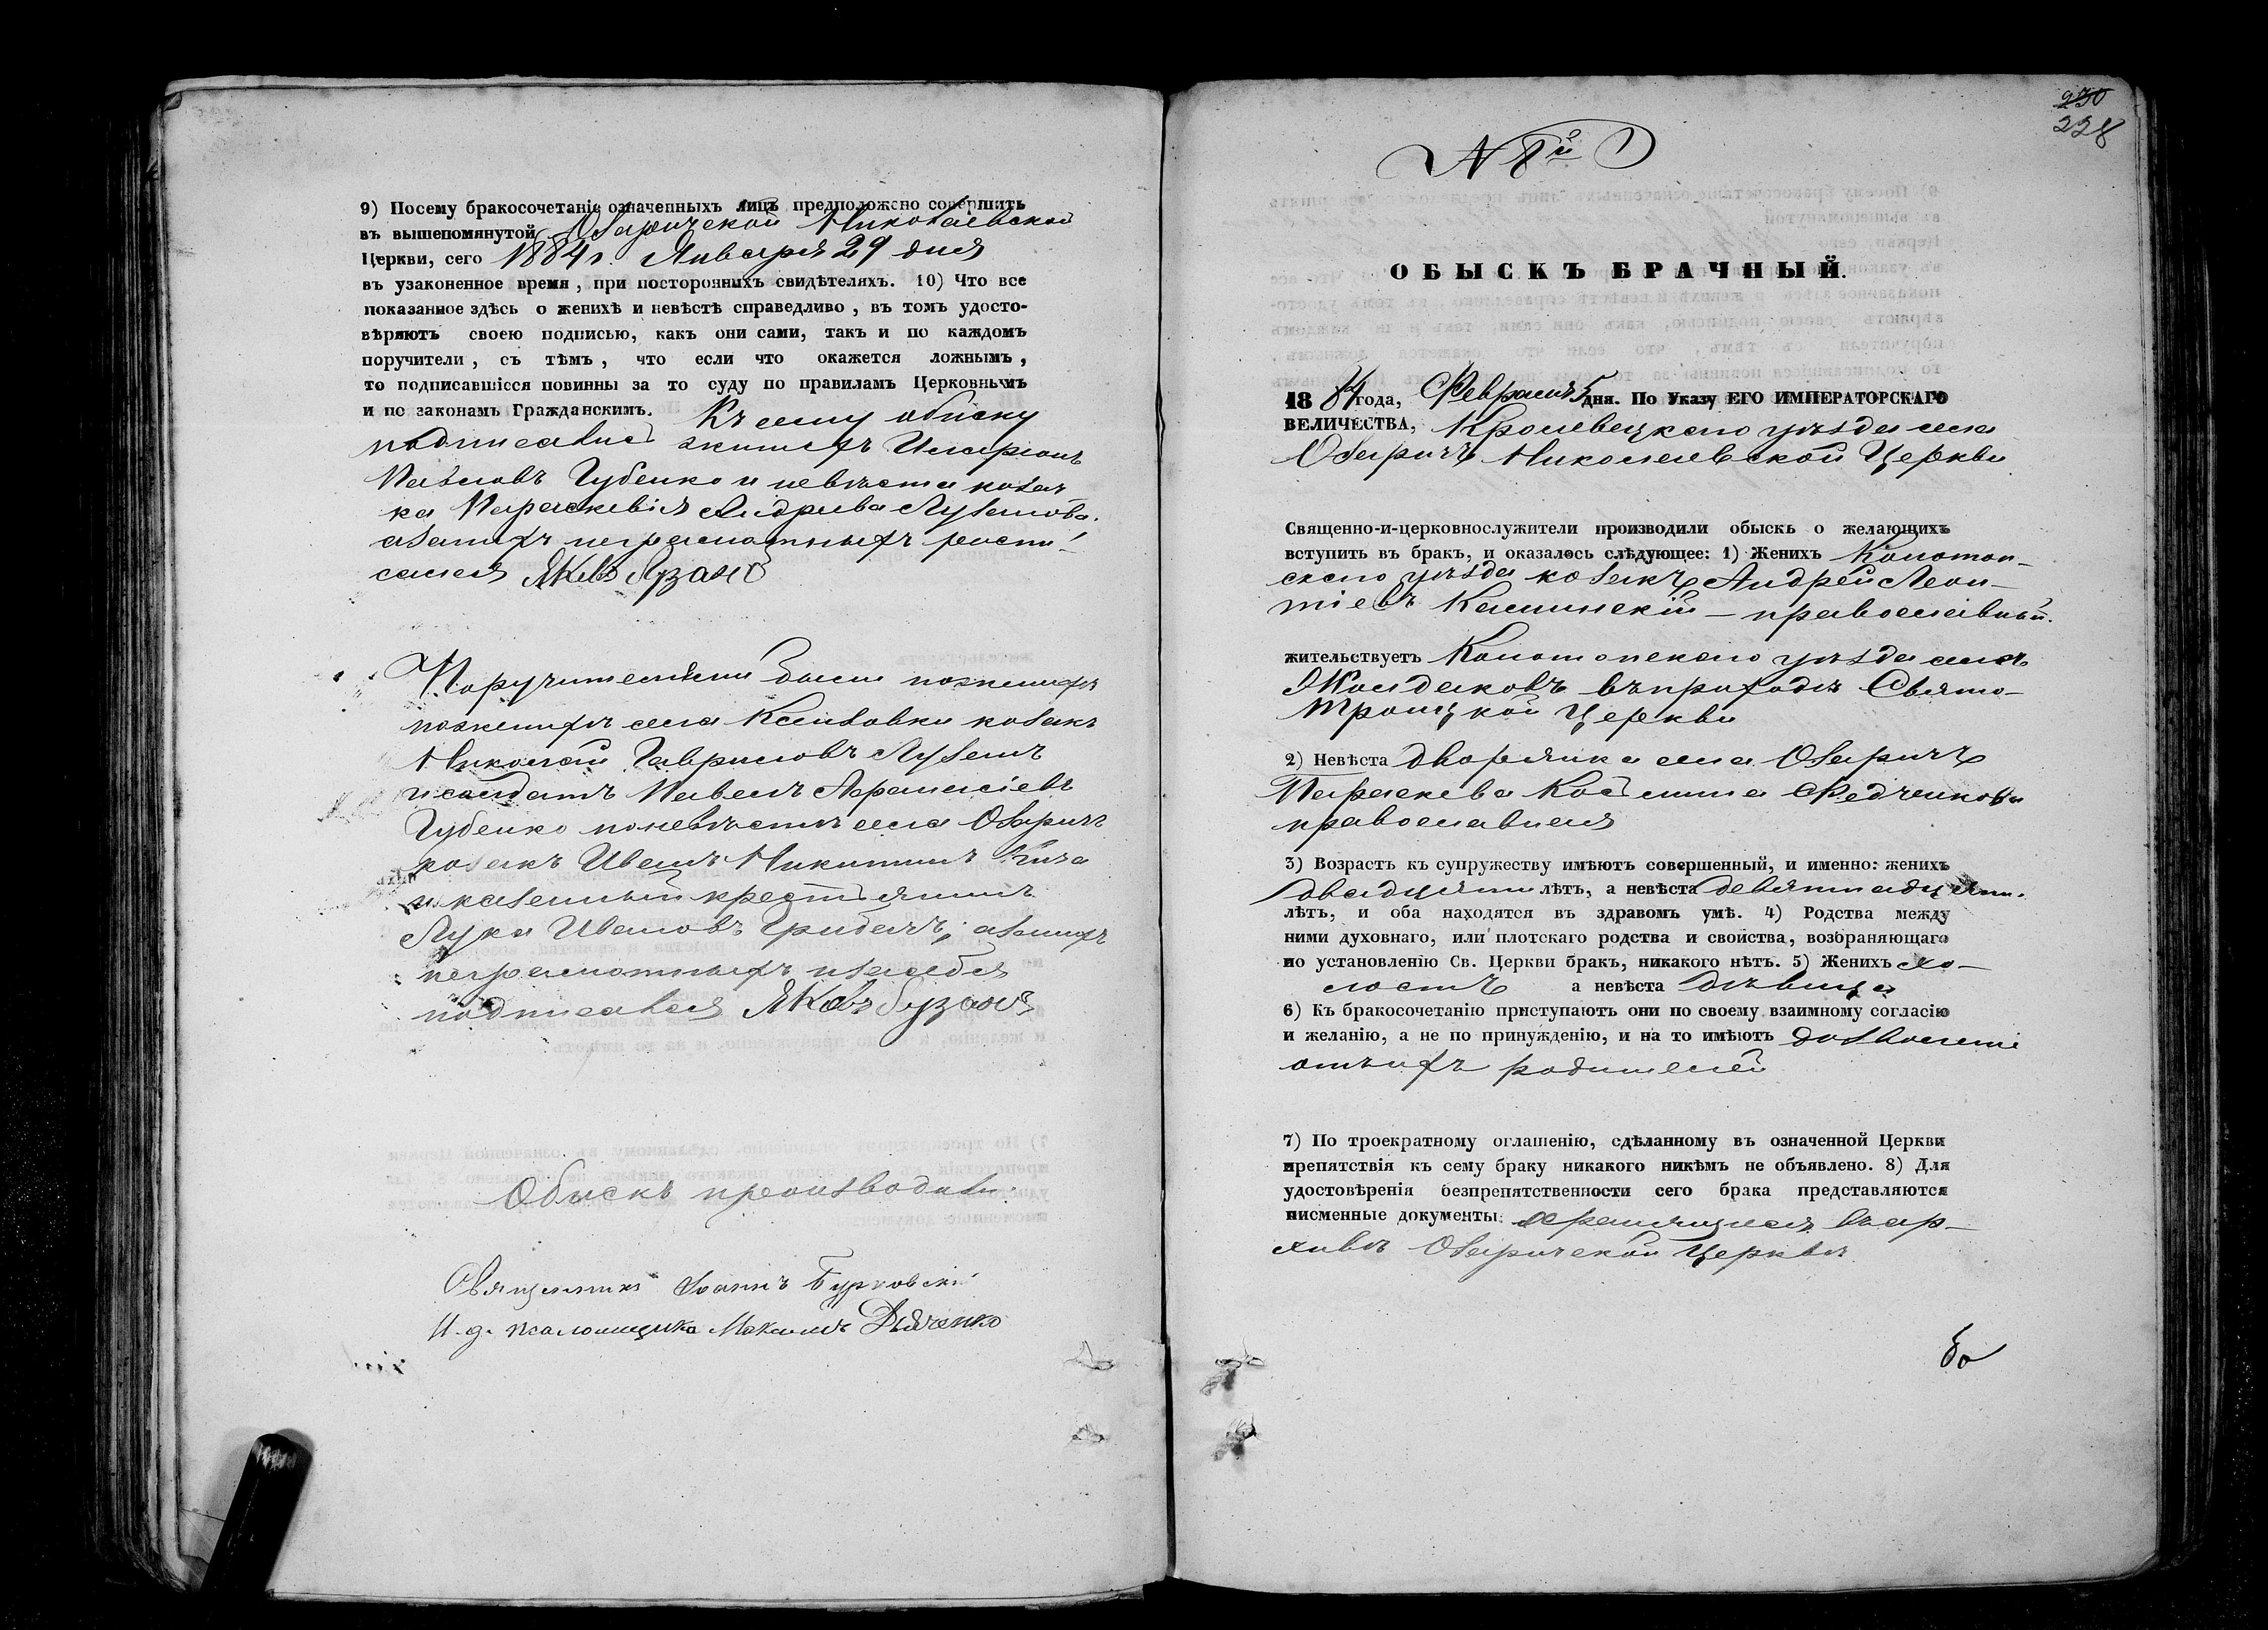 9) Посему бракосочетаніе означенныхъ лицъ предположено совершить
въ вышепомянутой Озаричской Николаевской
Церкви, сего 1884 г. Января 29 дня
въ узаконенное время, при посторонныхъ свидѣтеляхъ. 10) Что все
показанное здѣсь о женихѣ и невѣстѣ справедливо, въ томъ удосто-
вѣряютъ своею подписью, какъ они сами, такъ и по каждомъ
поручители, съ тѣмъ, что если что окажется ложнымъ,
то подписавшіеся повинны за то суду по правиламъ Церковнымъ
и по законамъ Гражданскимъ. Къ сему обыску
подписались женихъ Иларіонъ
Павловъ Губенко и невѣста козач
ка Параскевія Андреева Лузанова.
а за нихъ неграмотныхъ роспи-
сался Яковъ Лузанъ
Поручителями были по женихѣ
по женихѣ села козакъ
Николай Гавриловъ Лузанъ
и солдатъ Павелъ Афанасіевъ
Губенко по невѣстѣ села Озаричъ
козакъ Иванъ Никитинъ
и казенный крестьянинъ
Лука Ивановъ а за нихъ
неграмотныхъ и за себя
подписался Яковъ Лузанъ
Обыскъ производили:
Священникъ Іоаннъ Бурковскій
И. д. псаломщика Максимъ Дьяченко
230
228
N 8й
ОБЫСКЪ БРАЧНЫЙ.
1884 года, Февраля 5 дня. По Указу ЕГО ИМПЕРАТОРСКАГО
ВЕЛИЧЕСТВА, Кролевецкаго уѣзда села
Озаричъ Николаевской Церкви
Священно-и-церковнослужители производили обыскъ о желающихъ
вступить въ бракъ, и оказалось слѣдующее: 1) Женихъ Конотоп-
скаго уѣзда козакъ Андрей Леон-
тіевъ Калинскій - православный.
жительствуетъ Конотопскаго уѣзда села
Жолдаковъ въ приходѣ Свято-
Троицкой Церкви
2) Невѣста дворянка села Озаричъ
Параскева Федченкова
православная
3) Возрастъ къ супружеству имѣютъ совершенный, и именно: женихъ
двадцати лѣтъ, а невѣста девятнадцати
лѣтъ, и оба находятся въ здравомъ умѣ. 4) Родства между
ними духовнаго, или плотскаго родства и свойства, возбраняющаго
по установленію Св. Церкви бракъ, никакого нѣтъ. 5) Женихъ хо-
лостъ а невѣста дѣвица
6) Къ бракосочетанію приступаютъ они по своему взаимному согласію
и желанію, а не по принужденію, и на то имѣютъ дозволеніе
отъ ихъ родителей
7) По троекратному оглашенію, сдѣланному въ означенной Церкви
препятствія къ сему браку никакого никѣмъ не объявлено. 8) Для
удостовѣренія безпрепятственности сего брака представляются
писменные документы: хранящіеся въ ар-
хивѣ Озаричской Церкви